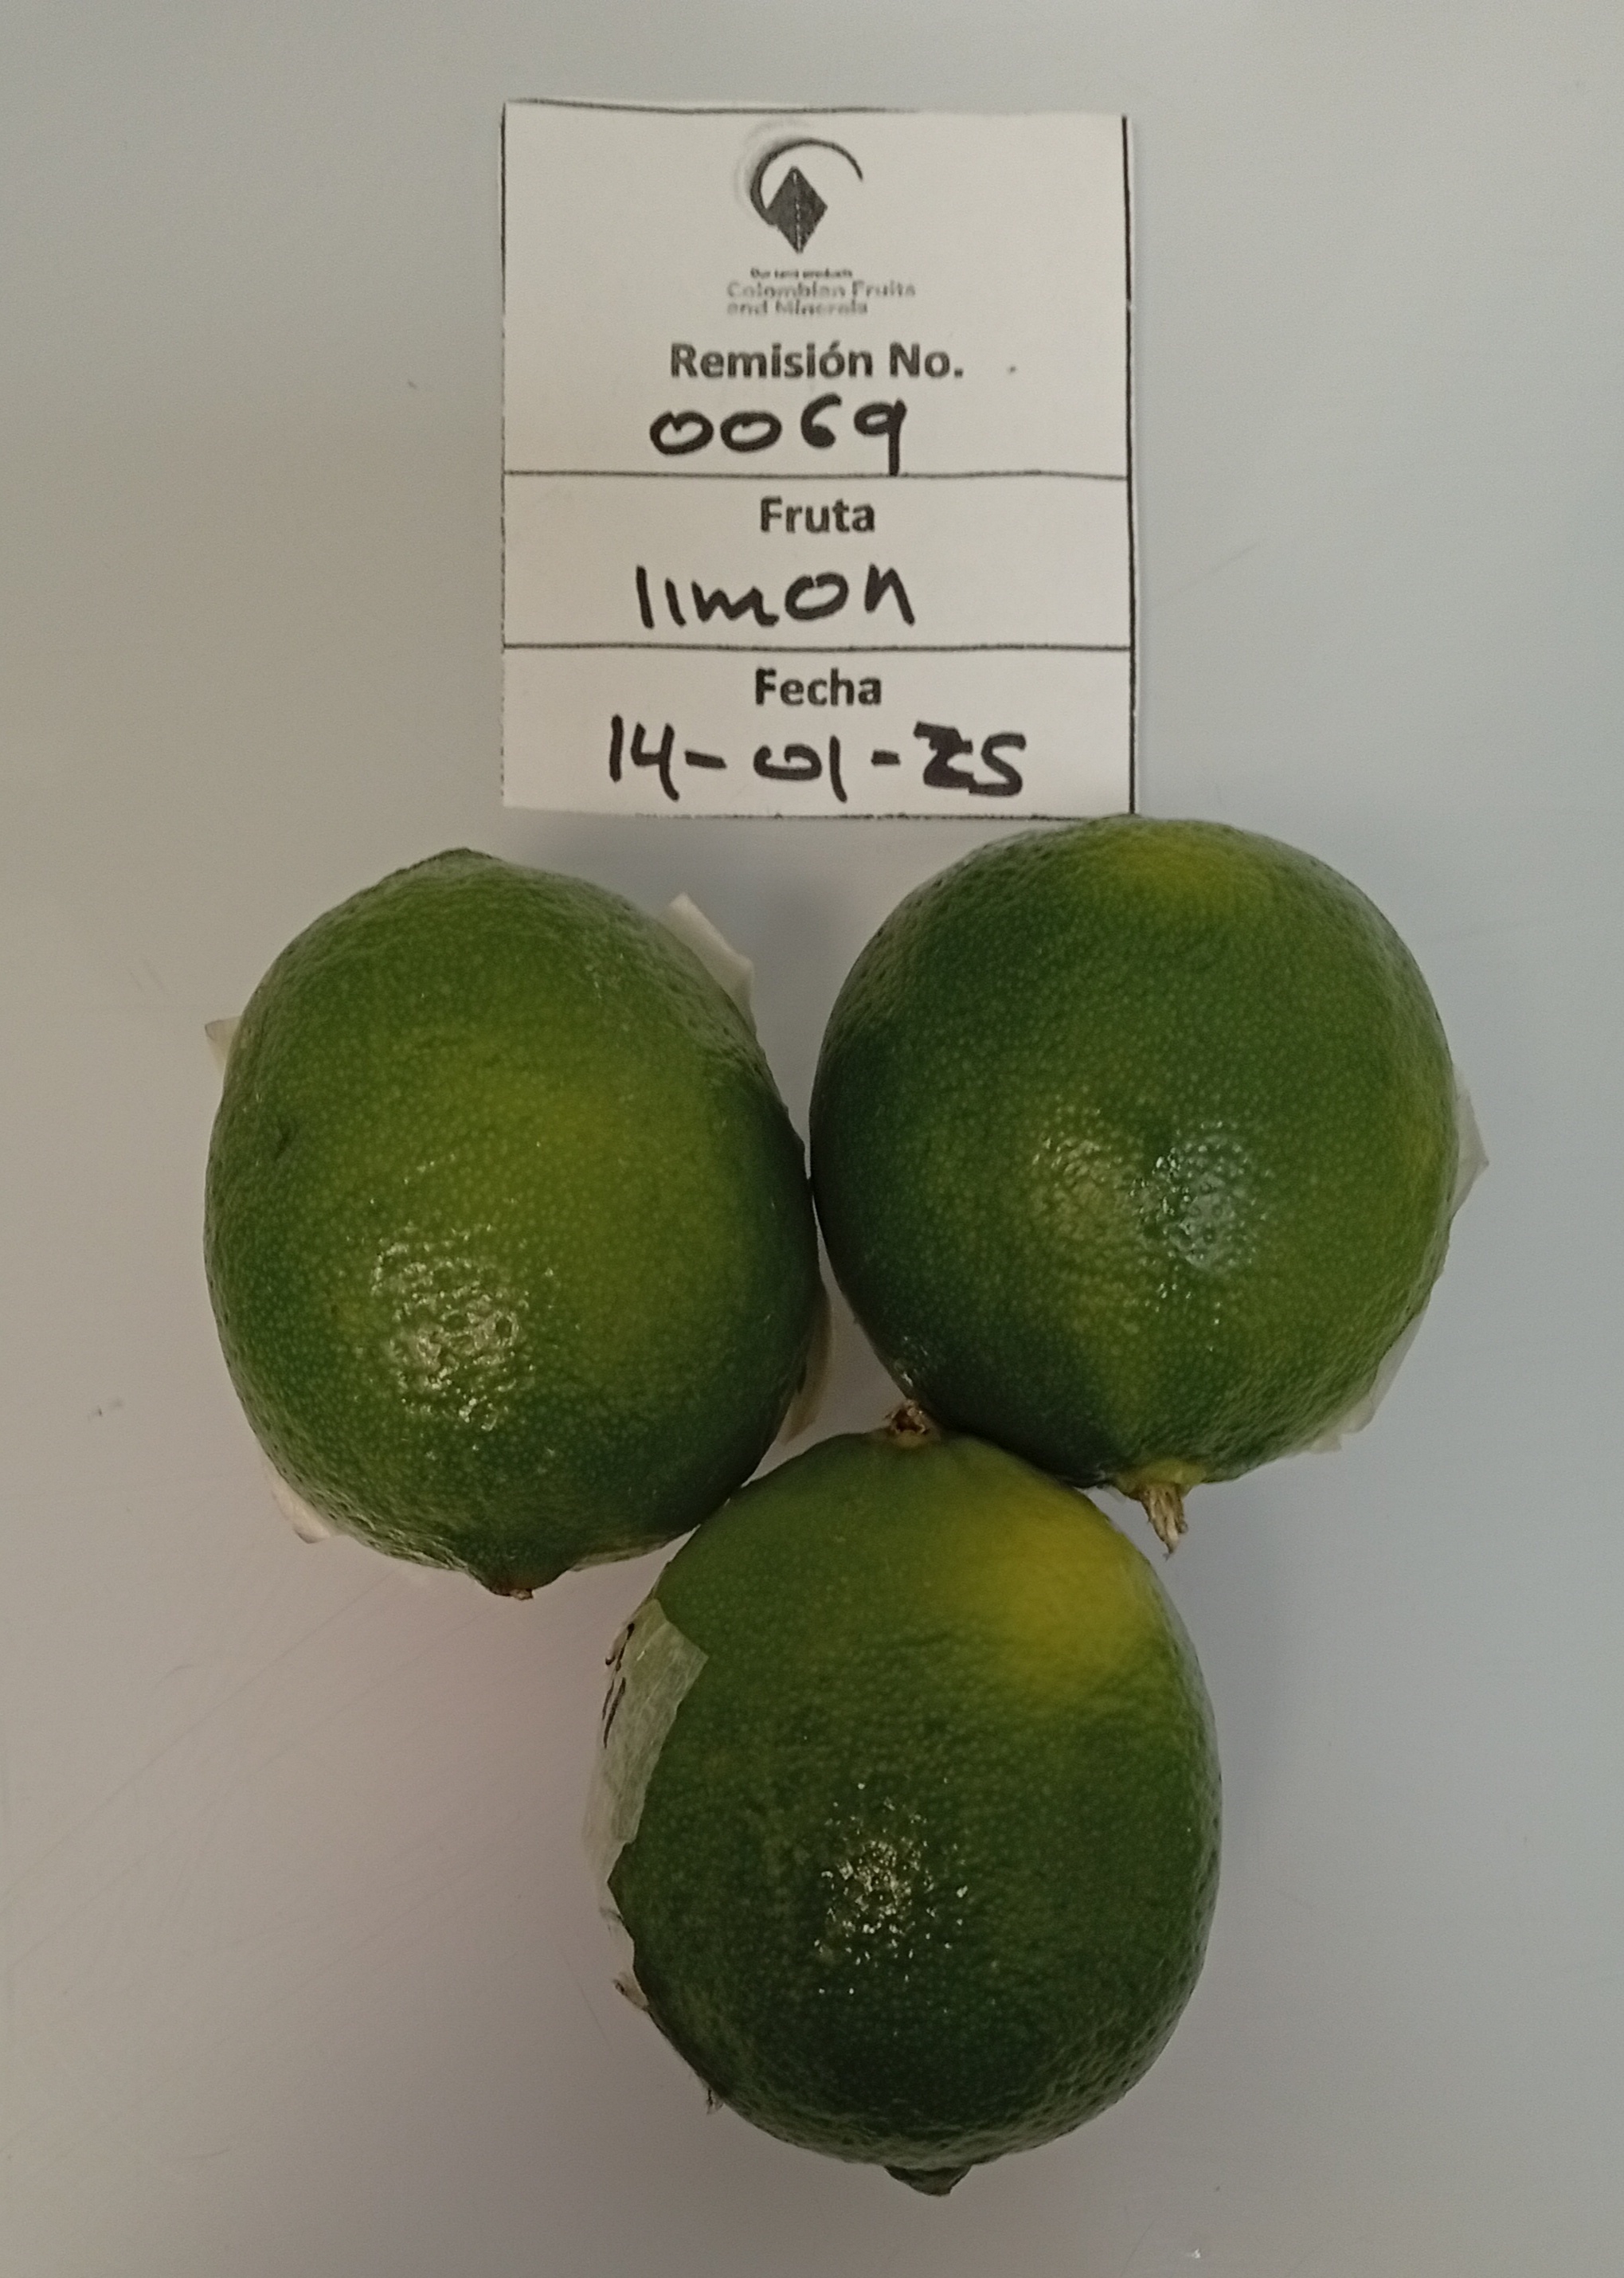 Our best products
Colombian Fruits
and Minerals
Remisión No.
0069
Fruta
limon
Fecha
14-01-25